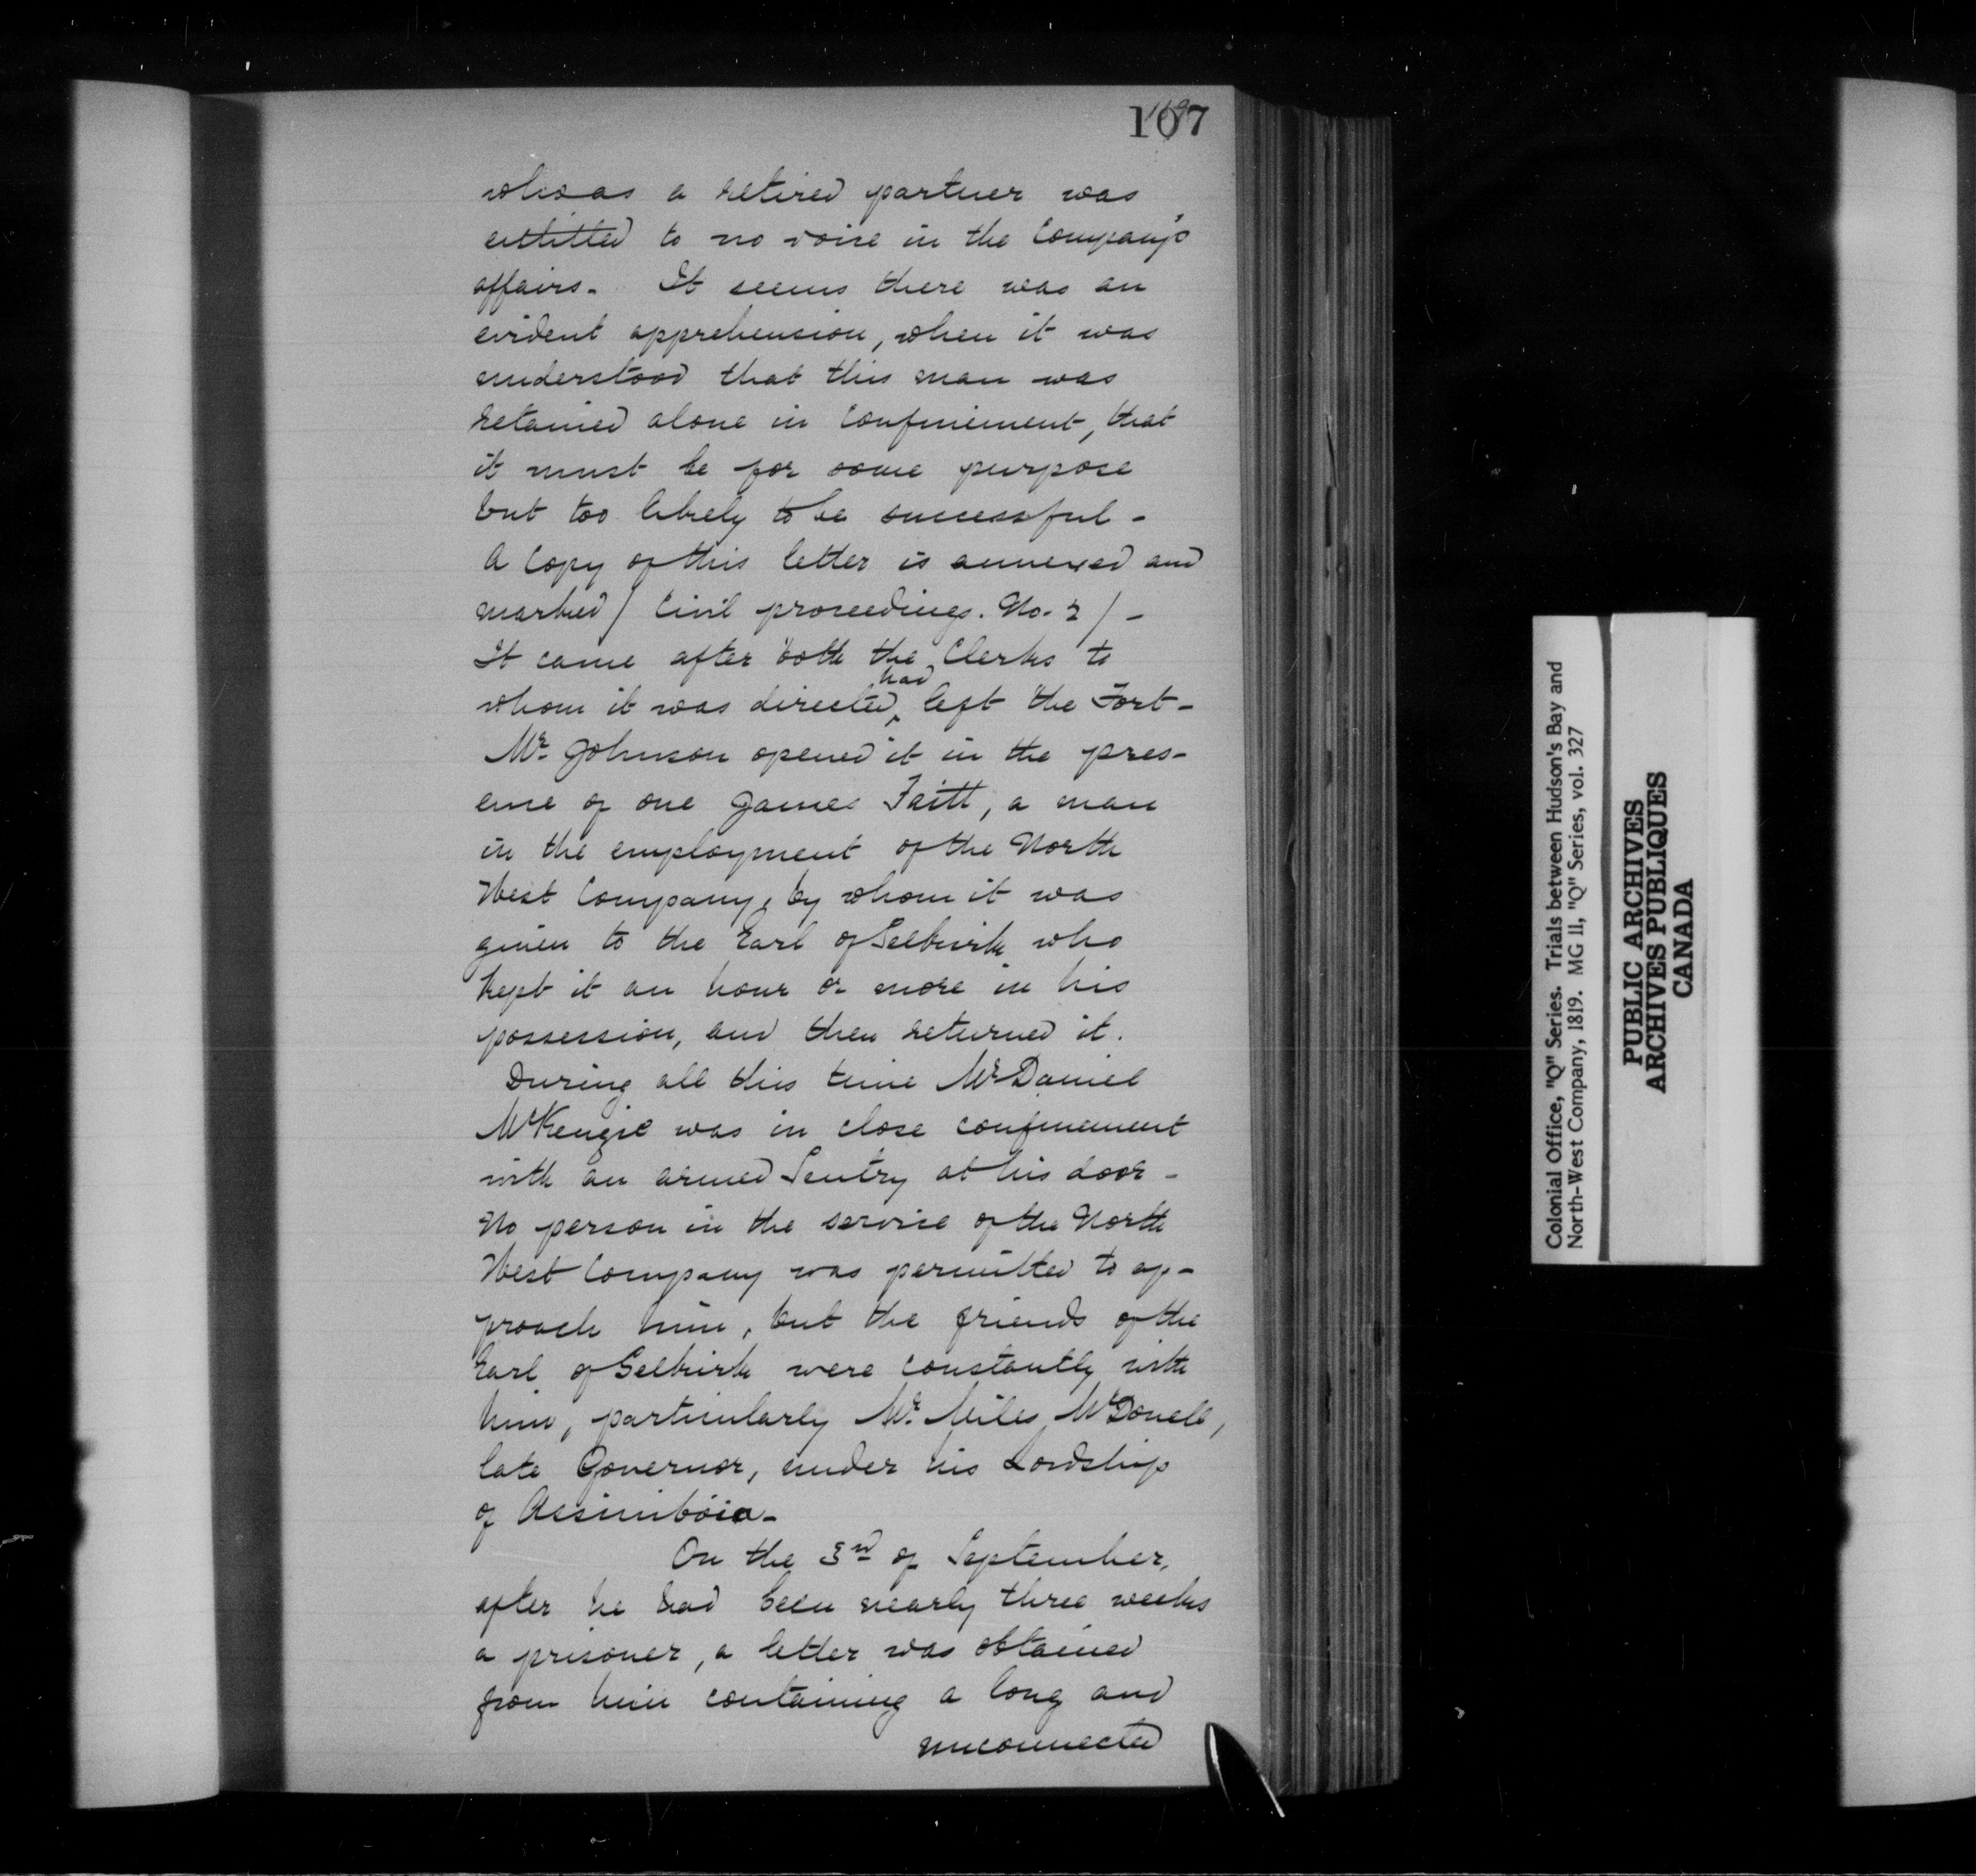 107
who as a retired partner was
entitled to no voice in the Company's
affairs. It seems there was an
evident apprehension, when it was
understood that this man was
retained alone in confinement, that
it must be for some purpose
but too likely to be successful -
A Copy of this letter is annexed and
marked / Civil proceedings. No. 2 / -
It came after both the Clerks to
whom it was directed had left the Fort -
Mr Johnson opened it in the pres-
ence of one James Taitt, a man
in the employment of the North
West Company, by whom it was
given to the Earl of Selkirk who
kept it an hour or more in his
possession, and then returned it.
During all this time Mr Daniel
McKenzie was in close confinement
with an armed Sentry at his door -
No person in the service of the North
West Company was permitted to ap-
proach him, but the friends of the
Earl of Selkirk were constantly with
him, particularly Mr. Miles McDonell,
late Governor, under his Lordship
of Assiniboia -
On the 3rd of September,
after he had been nearly three weeks
a prisoner, a letter was obtained
from him containing a long and
unconnected
Colonial Office, "Q" Series. Trials between Hudson's Bay and
North-West Company, 1819. MG 11, "Q" Series, vol. 327
PUBLIC ARCHIVES
ARCHIVES PUBLIQUES
CANADA